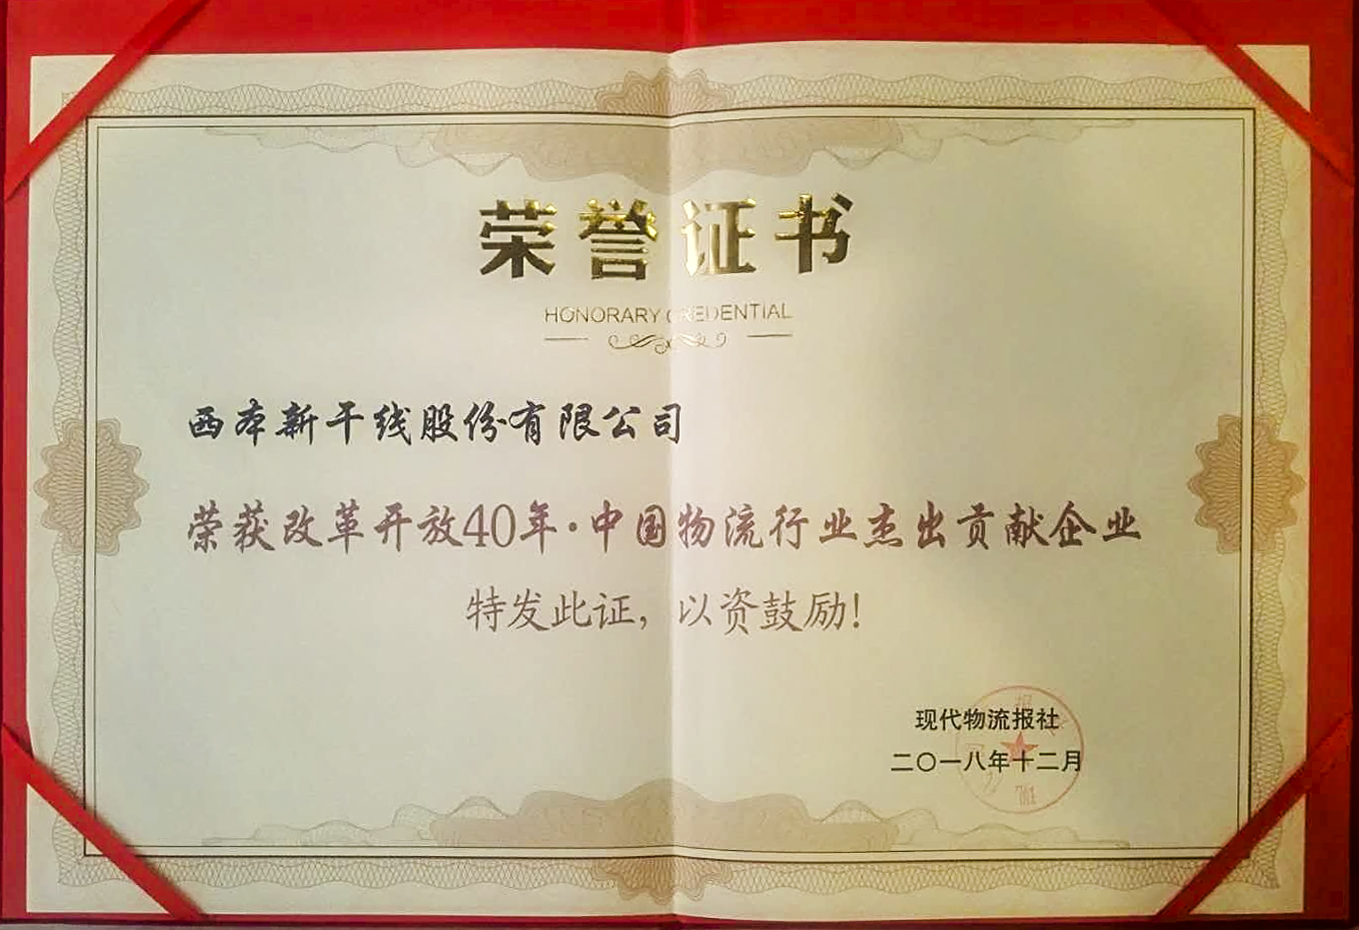 荣誉证书
HONORARY CREDENTIAL
西本新干线股份有限公司
荣获改革开放40年·中国物流行业杰出贡献企业
特发此证，以资鼓励！
现代物流报社
二〇一八年十二月